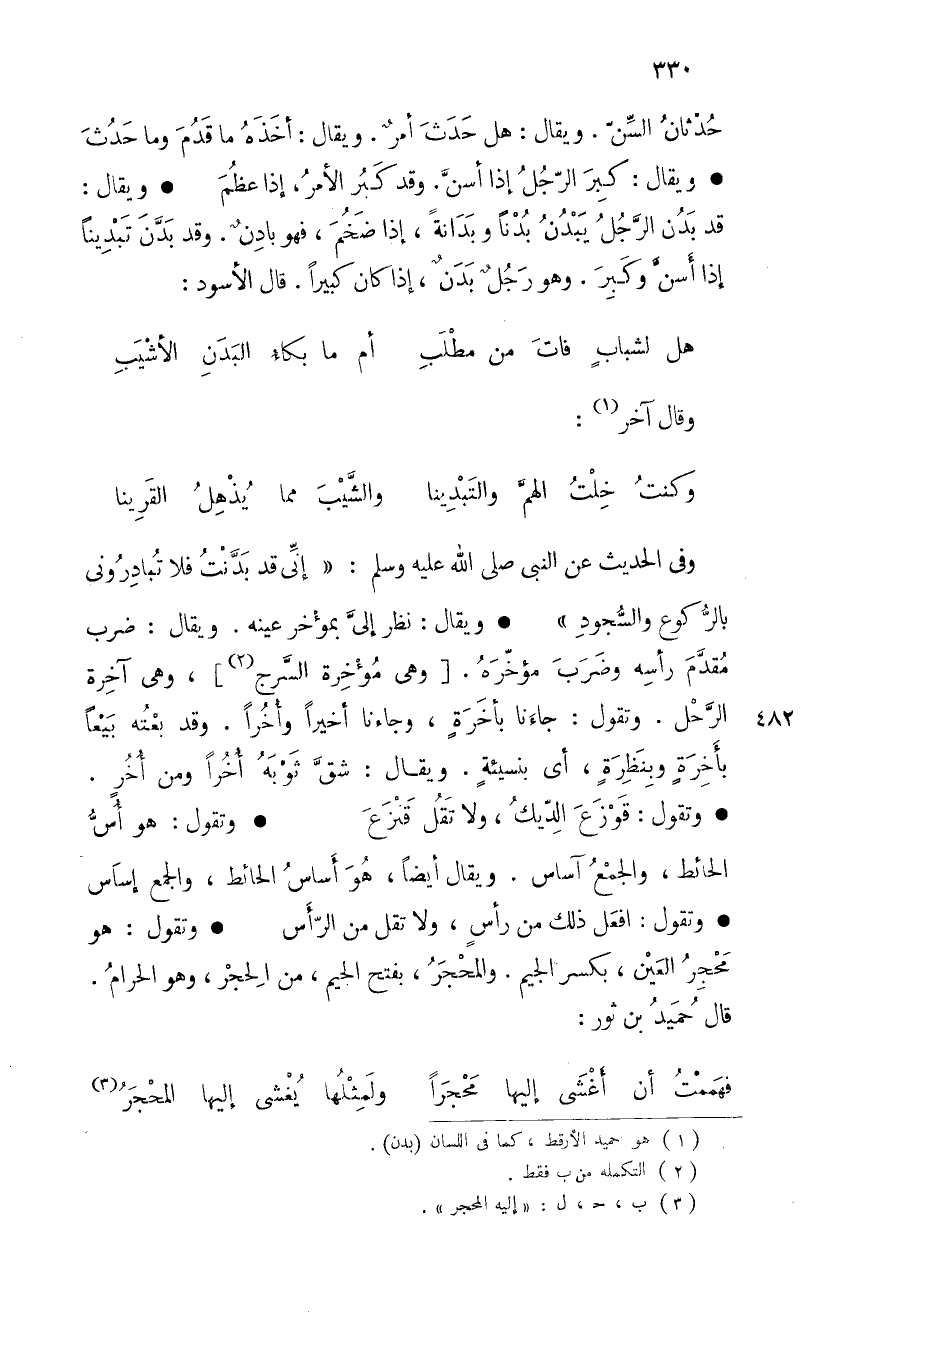 ٣٣٠
حُدْثانُ السِّنّ . ويقال : هل حَدَثَ أمرٌ . ويقال : أخَذَهُ ما قَدُمَ وما حَدُثَ
● ويقال : كَبِرَ الرّجُلُ إذا أسنَّ . وقد كَبُر الأمرُ ، إذا عظُمَ ● ويقال :
قد بَدُن الرَّجُلُ يَبْدُنُ بُدْناً وبَدَانةً ، إذا ضَخُمَ ، فهو بادِنٌ . وقد بَدَّنَ تَبْدِيناً
إذا أَسنَّ وكَبِرَ . وهو رَجُلٌ بَدَنٌ ، إذا كان كبيراً . قال الأسود :
هل لشبابٍ فاتَ من مطْلَبِ أم ما بكاء البَدَنِ الأشْيَبِ
وقال آخر (١) :
وكنتُ خِلْتُ الهمَّ والتَبْدِينا والشَّيْبَ مما يُذْهِلُ القَرِينا
وفى الحديث عن النبى صلى الله عليه وسلم : « إنِّى قد بَدَّنْتُ فلا تُبادِرُونى
بالرُّكوع والسُّجودِ » ● ويقال : نظر إلىَّ بمؤخر عينه . ويقال : ضرب
مُقدَّمَ رأسِه وضَرَبَ مؤخّرَهُ . [ وهى مُؤخِرة السَّرج (٢) ] ، وهى آخِرة
الرَّحْل . وتقول : جاءَنا بأخَرَةٍ ، وجاءنا أخيراً وأُخُراً . وقد بعْتُه بَيْعاً ٤٨٢
بأَخِرَةٍ وبِنَظِرَةٍ ، أى بنسيئةٍ . ويقال : شقَّ ثَوْبَهُ أُخُراً ومن أُخُرٍ .
● وتقول : قَوْزَعَ الدِّيكُ ، ولا تَقُل قَنْزَعَ ● وتقول : هو أُسُّ
الحائط ، والجمْعُ آساس . ويقال أيضاً ، هُوَ أَساسُ الحائط ، والجمع إساَس
● وتقول : افعَل ذلك من رأسٍ ، ولا تقل من الرّأَس ● وتقول : هو
مَحْجِرُ العَيْن ، بكسر الجيم . والمحْجَرُ ، بفتح الجيم ، من الحِجْر ، وهو الحرامُ .
قال حُميَدُ بن ثور :
فهَممْتُ أن أَغْشَى إليها مَحْجَراً ولَمِثْلُها يُغْشى إليها المحْجَرُ (٣)
( ١ ) هو حميد الأرقط ، كما فى اللسان (بدن) .
( ٢ ) التكمله من ب فقط .
( ٣ ) ب ، ح ، ل : « إليه المحجر » .